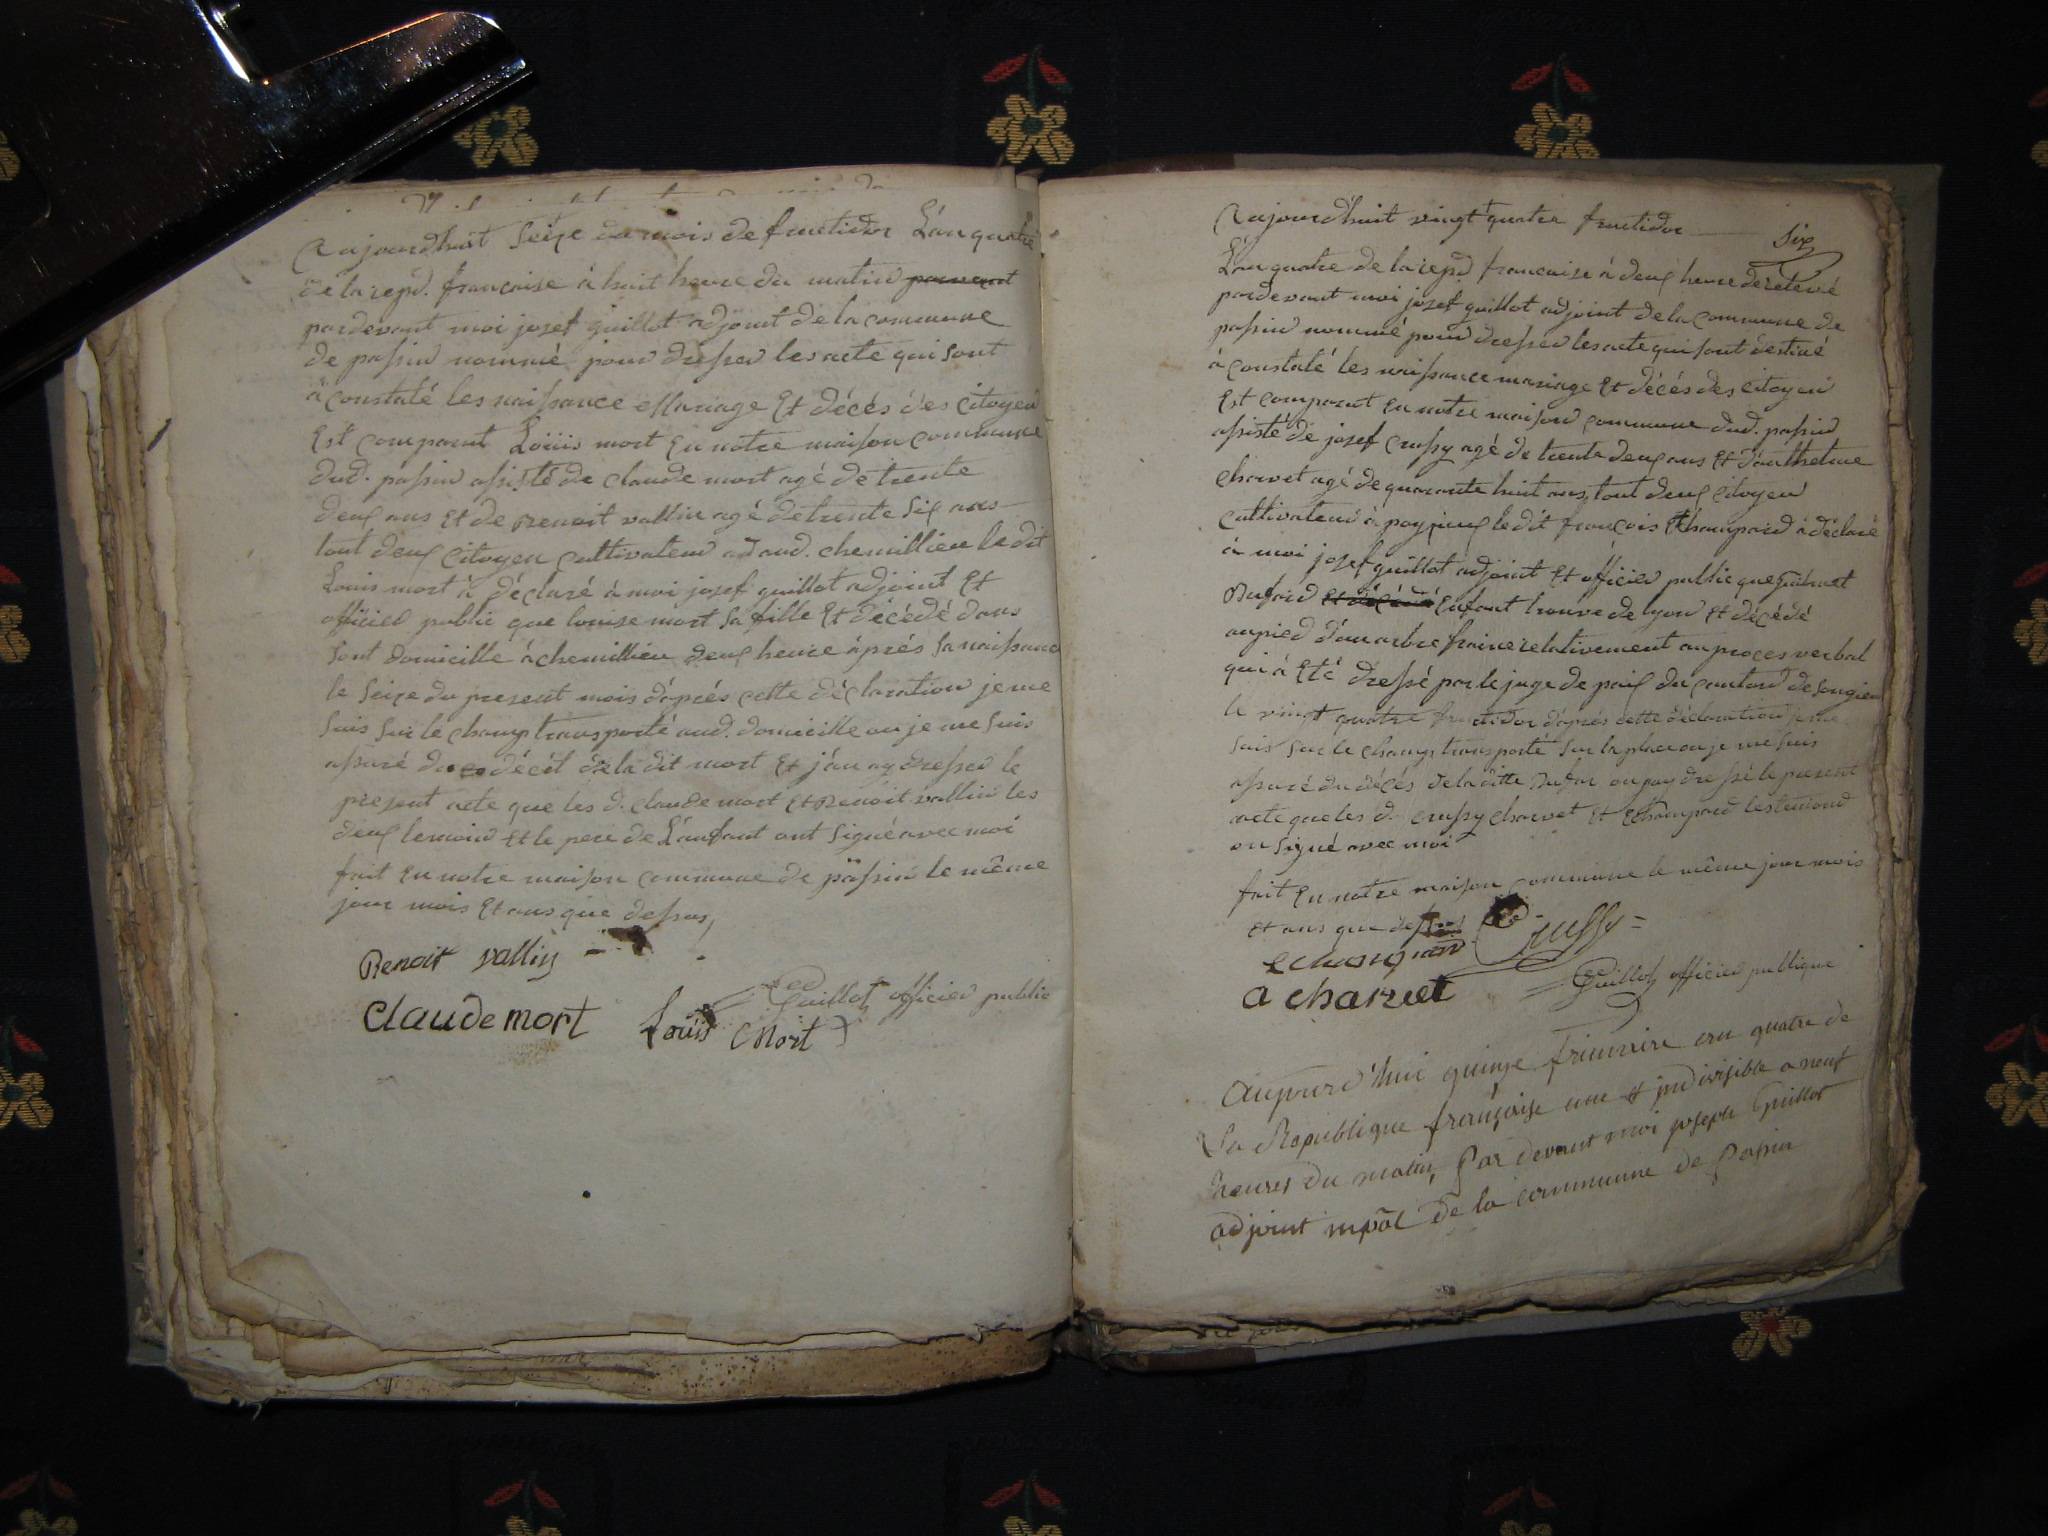 Aujourdhuit Seize du mois de fructidor L'an quatre
de la repd. francaise à huit heure du matin parevant
pardevant moi josef guillot adjoint de la commune
de passin nommé pour dresser les acte qui sont
à constaté les naissance Mariage Et décés des Citoyen
Est comparut Loüis mort En notre maison commune
dud. passin assisté de claude mort agé de trente
deux ans Et de Benoit vallin agé de trente Six ans
tout deux Citoyen Cultivateur aud. chemillieu le dit
Louis mort à déclaré à moi josef guillot adjoint Et
officier public que louise mort Sa fille Et décédé dans
Sont domicille à chemillieu deux heure àprés Sa naissance
le Seize du present mois d'aprés cette déclaration je me
Suis Sur le champ transporté aud. domicille ou je me Suis
assuré du décét de la dit mort Et j'an ay dresser le
present acte que les d. claude mort Et Benoit vallin les
deux temoin Et le pere de L'anfant ont Signé avec moi
fait En notre maison commune de passin le même
jour mois Et ans que dessus,
Benoit vallin
Guillot officier public
Claude mort Loüis Mort
Six
Aujourdhuit vingt quatre fructidor
L'an quatre de la repd francaise à deux heure de relevé
pardevant moi josef guillot adjoint de la commune de
passin nommé pour dresser les acte qui sont destiné
à constaté les naissance mariage Et décés des Citoyen
Est comparut En notre maison commune dud. passin
assisté de josef crussy agé de trente deux ans Et d'anthelme
charvet agé de quarante huit ans, tout deux Citoyen
Cultivateur à poyzieux le dit françois Echampard à déclaré
à moi josef guillot adjoint Et officier public que
Dufard Et décédé Enfant trouve de lyon Et décédé
au pied d'un arbre fraine relativement au proces verbal
qui à Eté dressé par le juge de paix du canton de Songieu
le vingt quatre fructidor d'aprés cette déclaration je me
Suis Sur le champ transporté Sur la place ou je me Suis
assuré du décés de la ditte Dufar on jay dressé le present
acte que les d. crussy charvet Et Echampard les temoind
on Signé avec moi
fait En notre maison commune le même jour mois
et ans que dessus
Echampard Crussy
a charvet Guillot officier publique
Aujourd'hui quinze frimaire an quatre de
La Republique française une et indivisible a neuf
heures du matin, Par devant moi joseph Guillot
adjoint mpāl de la commune de Passin